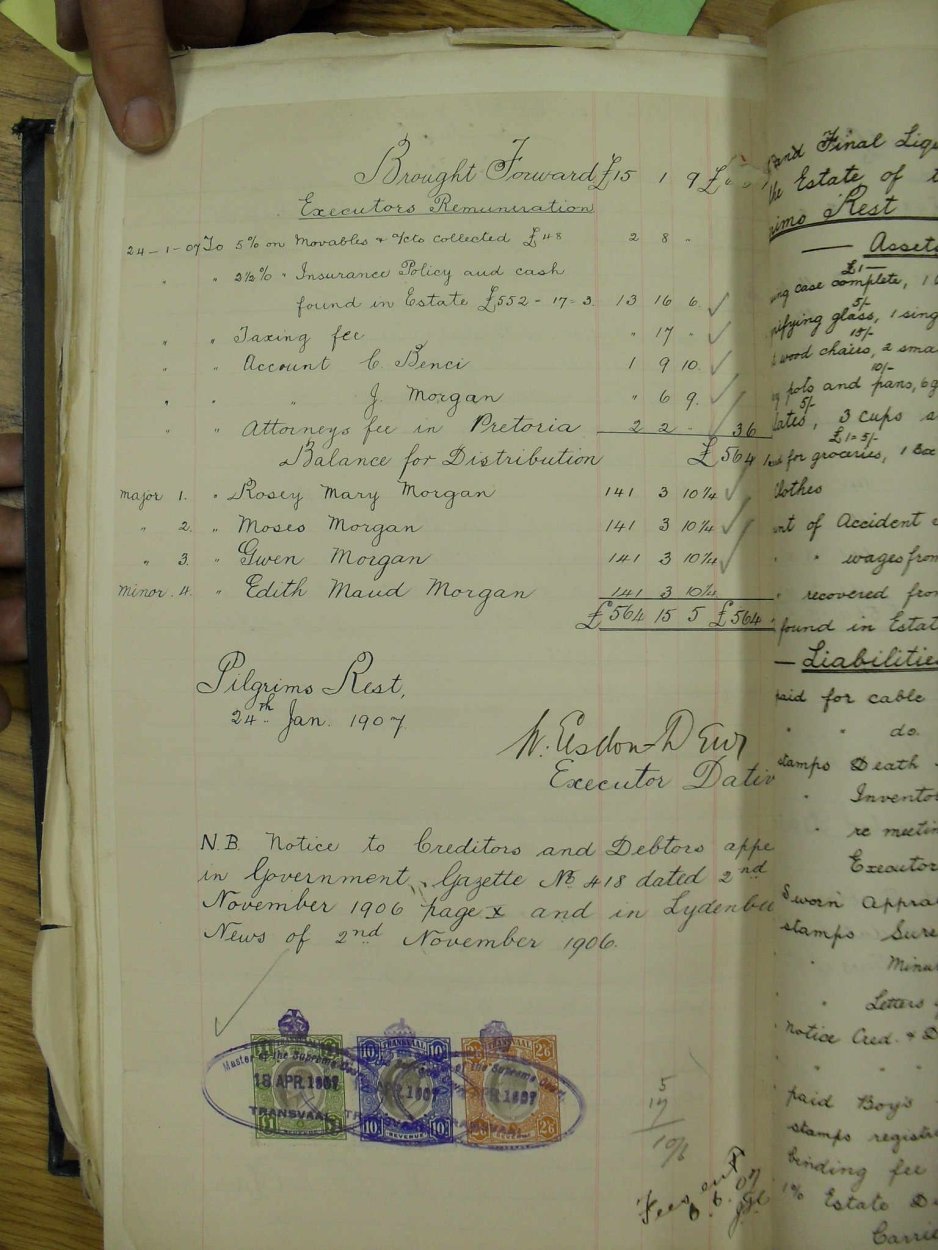 Brought Forward £15 1 9 £
Executors Remuneration
24-1-07 To 5% on Movables & a/cts collected £48 2 8 "
" " 2½% " Insurance Policy and cash
found in Estate £552-17=3. 13 16 6.
" " Taxing fee " 17 "
" " Account C Benci 1 9 10.
" " " J. Morgan " 6 9.
" " Attorneys fee in Pretoria 2 2 - 36
Balance for Distribution £564
major 1. " Rosey Mary Morgan 141 3 10¼
" 2. " Moses Morgan 141 3 10¼
" 3. " Gwen Morgan 141 3 10¼
minor 4. " Edith Maud Morgan 141 3 10¼
£564 15 5 £564
Pilgrims Rest,
24th Jan. 1907
Executor Dativ
N.B. Notice to Creditors and Debtors appe
in Government Gazette No 418 dated 2nd
November 1906 page x and in Lydenbu
News of 2nd November 1906.
TRANSVAAL
£1 £1
REVENUE
10/- 10/-
2/6 2/6
Master of the Supreme Court
18 APR. 1907
TRANSVAAL
5
17
10/6
Fees
6.07
and Final Liqu
the Estate of
Rest
Assets
£1—
ing case complete, 1
5/-
nifying glass, 1 sing
15/-
wood chairs, 2 sma
10/-
pots and pans, 6
5/-
lates, 3 cups
£1=5/-
for groceries, 1 Box
lothes
nt of Accident
" wages from
" recovered from
found in Estat
Liabilitie
paid for cable
" " do.
stamps Death
" Inventor
" re meetin
Executor
Sworn Apprai
stamps Sure
" Minu
" Letters
notice Cred. & D
paid Boy's
stamps registr
binding fee
1% Estate D
Carrie